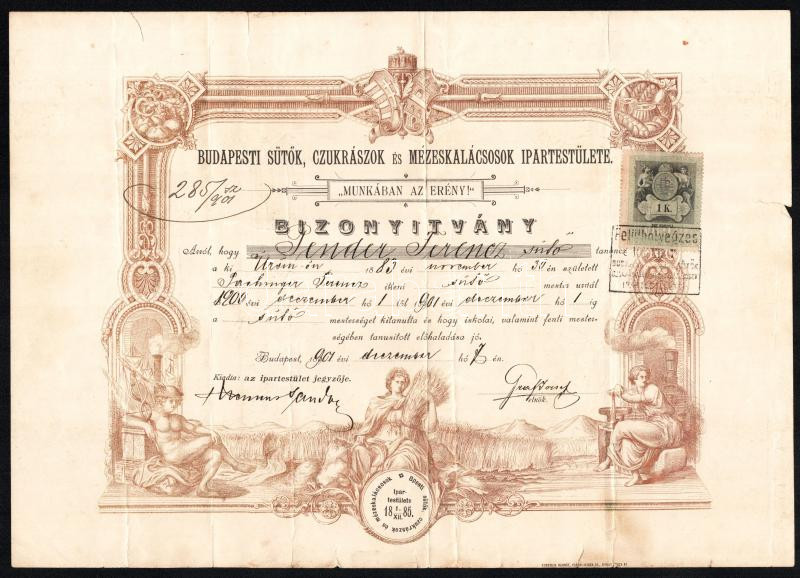 BUDAPESTI SÜTŐK, CZUKRÁSZOK ÉS MÉZESKALÁCSOSOK IPARTESTÜLETE.
285/901
„MUNKÁBAN AZ ERÉNY!"
1 K.
BIZONYITVÁNY
Felülbélyegzés
Arról, hogy Sender Ferencz sütő tanoncz
a ki 1883 évi november hó 30 án született
Ferencz itteni sütő mester urnál
1900 évi deczember hó 1 től 1901 évi deczember hó 1 ig
a sütő mesterséget kitanulta és hogy iskolai, valamint fenti mester-
ségében tanusitott előhaladása jó.
Budapest, 1901 évi deczember hó 7 én.
Kiadta: az ipartestület jegyzője.
Sándor
elnök.
Bpesti sütők, czukrászok és mézeskalácsosok
Ipar-
testülete
18 1/XII. 85.